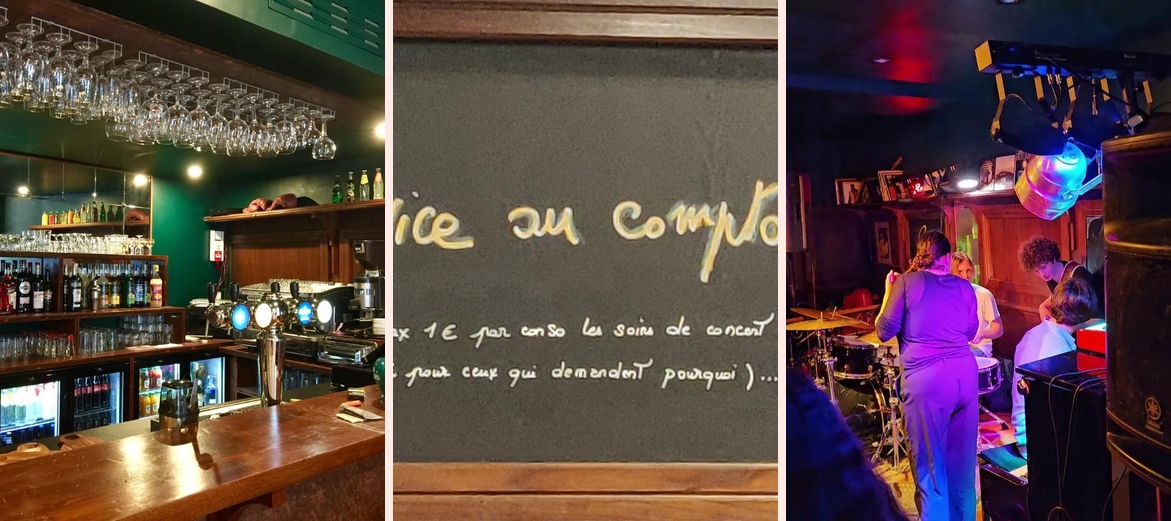 ice au compto
ax 1€ par conso les soirs de concert
pour ceux qui demandent pourquoi)...
YAMAHA